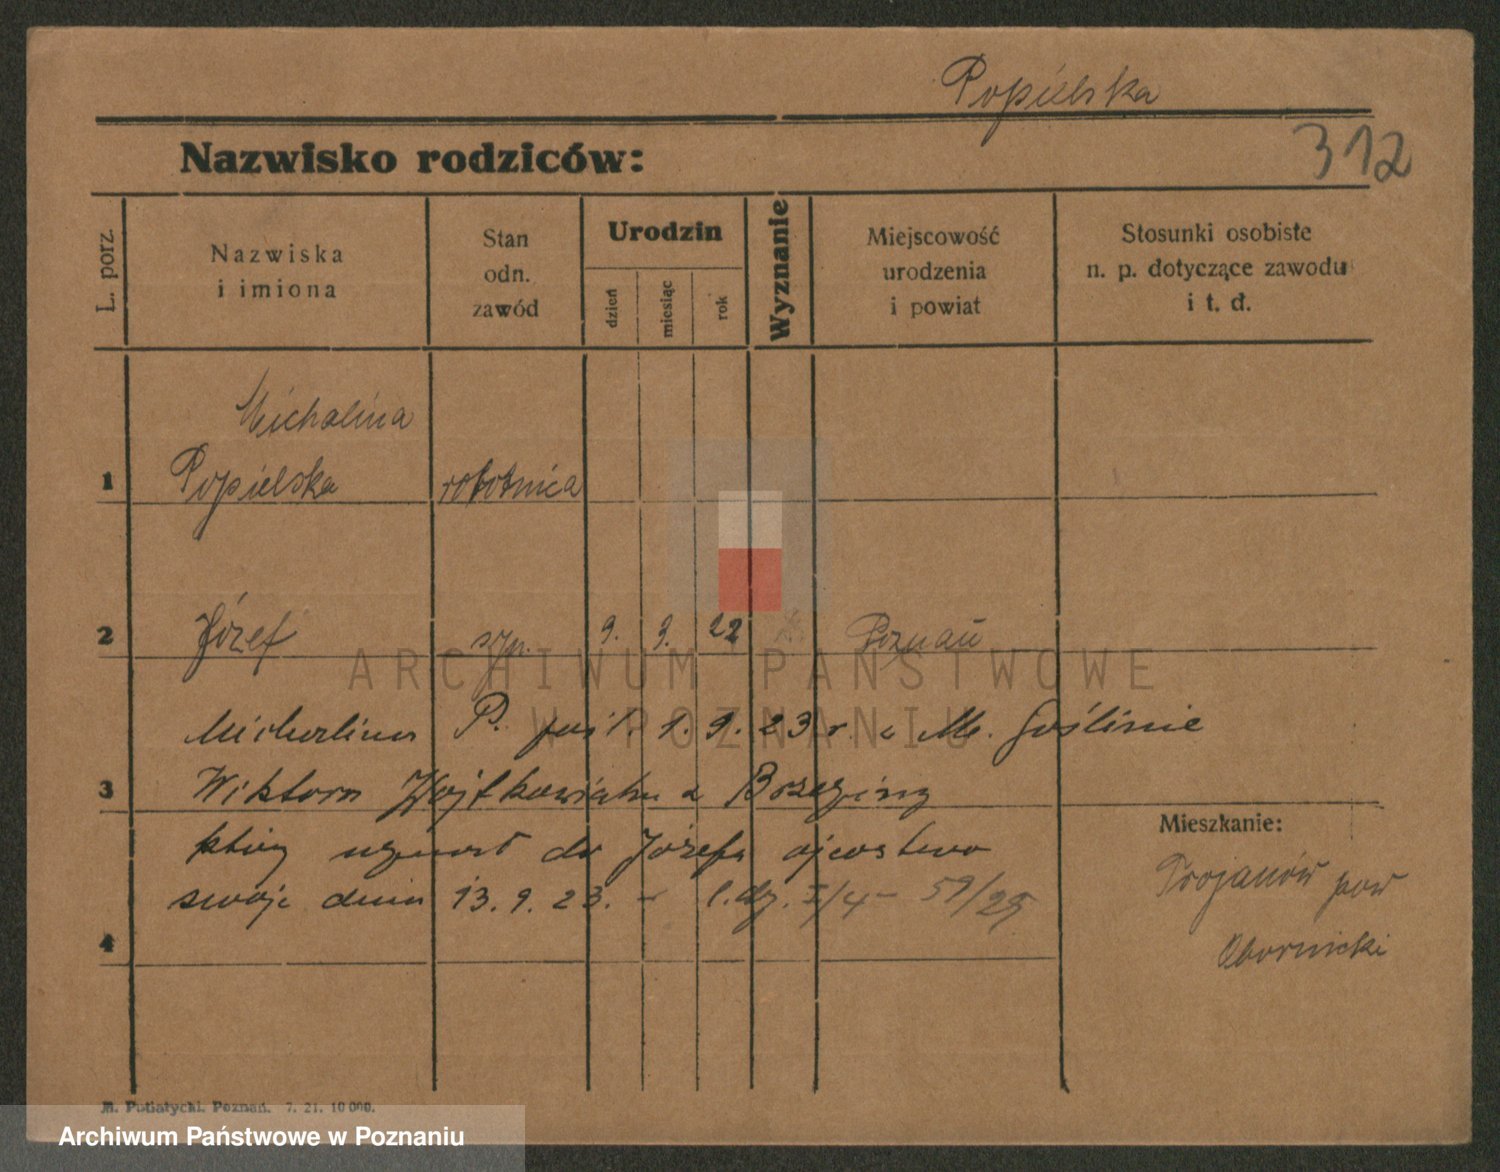 Popielska
Nazwisko rodziców:
312
L. porz.
Nazwiska
i imiona
Stan
odn.
zawód
Urodzin
dzień
miesiąc
rok
Wyznanie
Miejscowość
urodzenia
i powiat
Stosunki osobiste
n. p. dotyczące zawodu
i t. d.
Michalina
1 Popielska robotnica
2 Józef syn. 9. 9. 22 Poznań
ARCHIWUM PAŃSTWOWE
W POZNANIU
Michalina P. 1. 9. 23 r. Goślinie
3 Wiktora Wojtkowiaka z Brzeziny
Mieszkanie:
który uznał do Józefa ojcostwo
swoje dnia 13. 9. 23. - l. dz. I/4 - 59/25
Trojanów pow
Obornicki
4
M. Putiatycki. Poznań. 7. 21. 10 000.
Archiwum Państwowe w Poznaniu